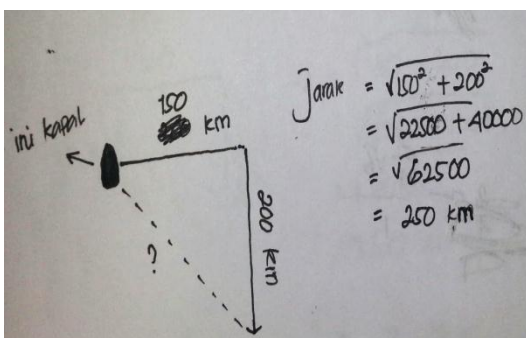 ini kapal
150
km
200 km
?
Jarak = √150² + 200²
= √22500 + 40000
= √62500
= 250 km